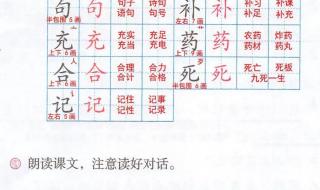 句 句 句子 诗句 补 补 补习 补课
语句 句号 补足 补充
半包围 5画 左右 7画
充 充 充实 充足 药 药 农药 炸药
充当 充电 药材
上下 6画 上下 9画
合 合 合理 合力 死 死 死亡 死板
合计 合格 九死一生
上下 6画 半包围 6画
记 记 记住 记事
记性 记录
左右 5画
朗读课文，注意读好对话。